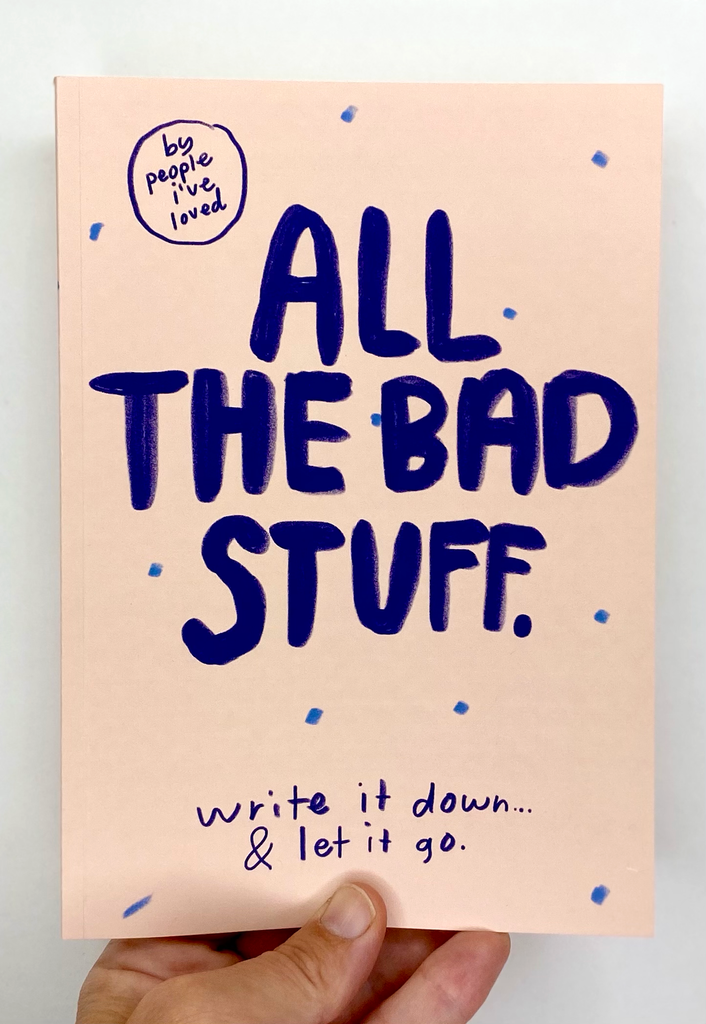 by
people
i've
loved
ALL
THE BAD
STUFF.
write it down...
& let it go.